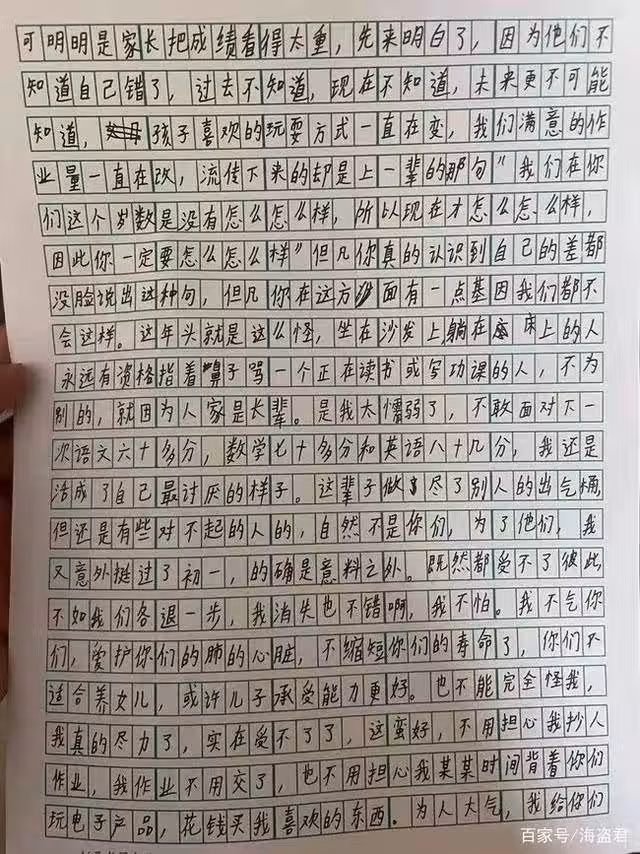 可明明是家长把成绩看得太重，先来明白了，因为他们不
知道自己错了，过去不知道，现在不知道，未来更不可能
知道，孩子喜欢的玩耍方式一直在变，我们满意的作
业量一直在改，流传下来的却是上一辈的那句“我们在你
们这个岁数是没有怎么怎么样，所以现在才怎么怎么样，
因此你一定要怎么怎么样”但凡你真的认识到自己的差都
没脸说出这种句，但凡你在这方面有一点基因我们都不
会这样。这年头就是这么怪，坐在沙发上躺在床上的人
永远有资格指着鼻子骂一个正在读书或写功课的人，不为
别的，就因为人家是长辈。是我太懦弱了，不敢面对下一
次语文六十多分，数学七十多分和英语八十几分，我还是
活成了自己最讨厌的样子。这辈子做尽了别人的出气桶，
但还是有些对不起的人的，自然不是你们，为了他们，我
又意外挺过了初一，的确是意料之外。既然都受不了彼此，
不如我们各退一步，我消失也不错啊，我不怕。我不气你
们，爱护你们的肺的心脏，不缩短你们的寿命了，你们不
适合养女儿，或许儿子承受能力更好。也不能完全怪我，
我真的尽力了，实在受不了了，这蛮好，不用担心我抄人
作业，我作业不用交了，也不用担心我某某时间背着你们
玩电子产品，花钱买我喜欢的东西。为人大气，我给你们
百家号/海盗君